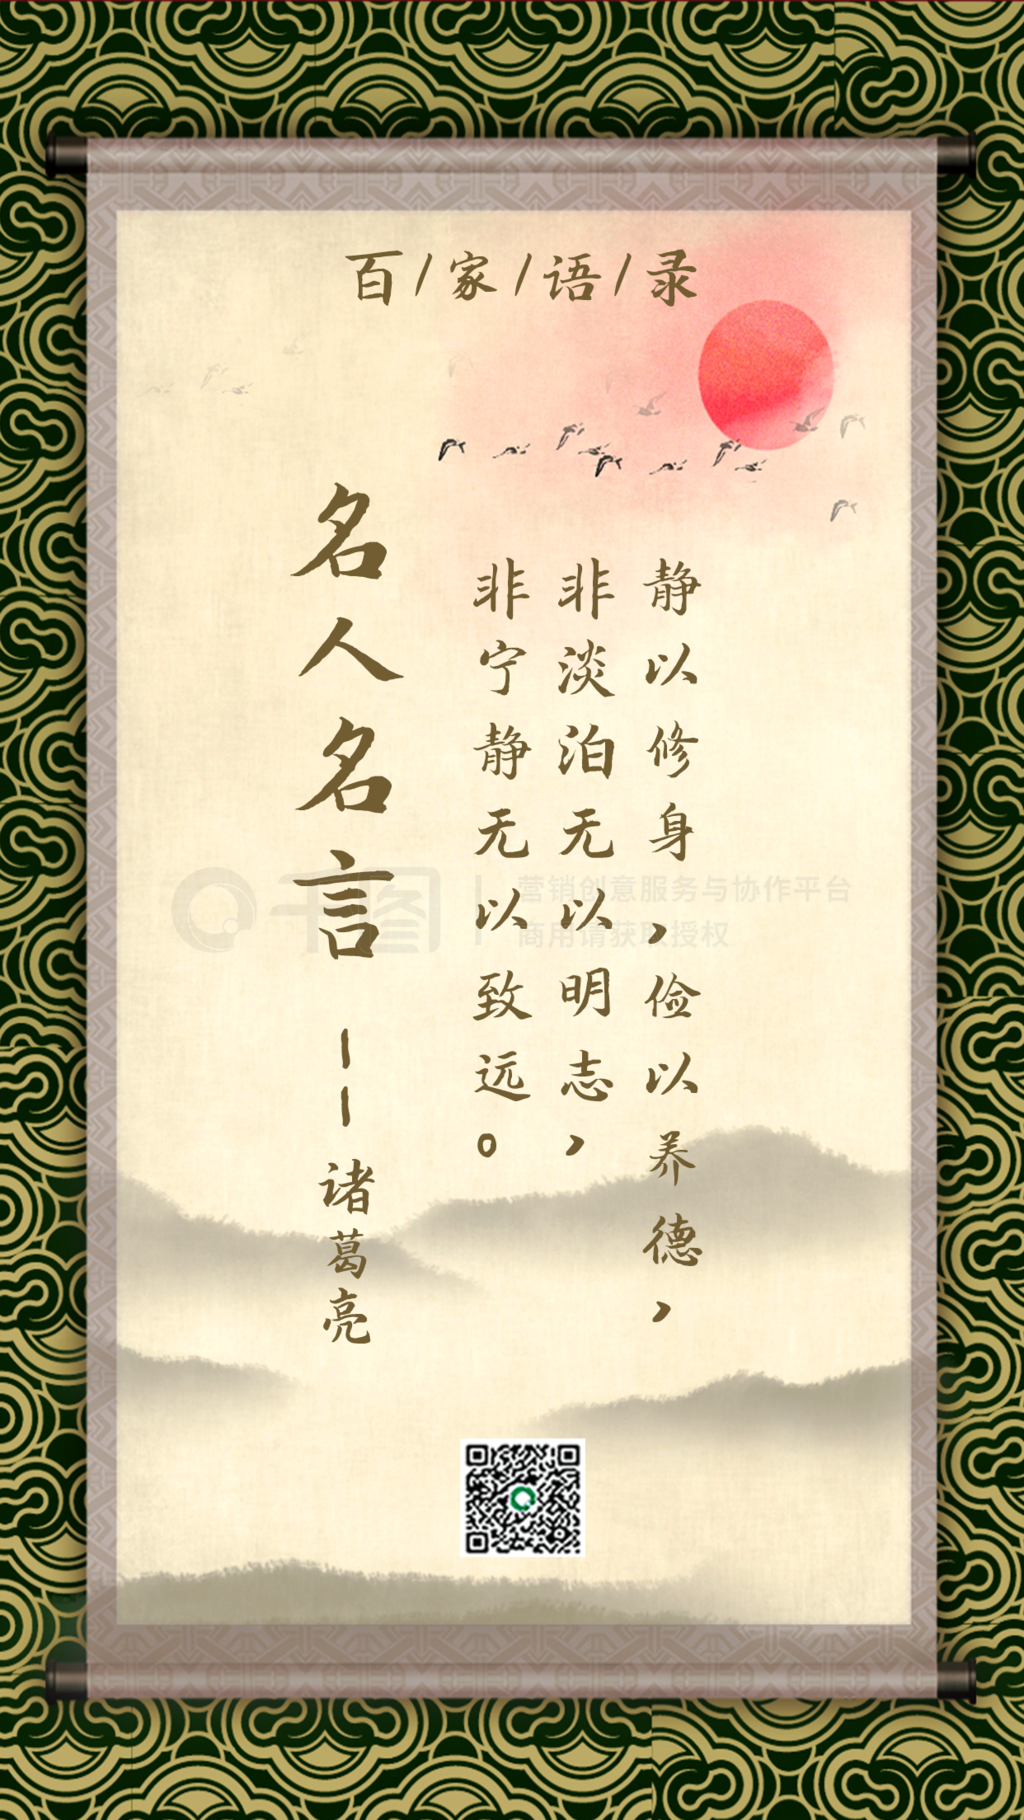 百/家/语/录
静以修身,俭以养德,
非淡泊无以明志,
非宁静无以致远。
名人名言
--诸葛亮
千图
营销创意服务与协作平台
商用请获取授权